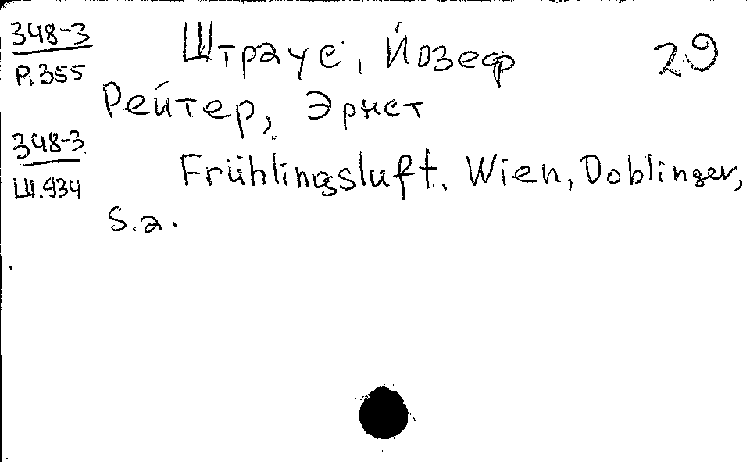 348-3
Р.355
348-3
Ш.934
Штраус, Йозеф
29
Рейтер, Эрнст
Frühlingsluft. Wien, Doblinger,
S.a.